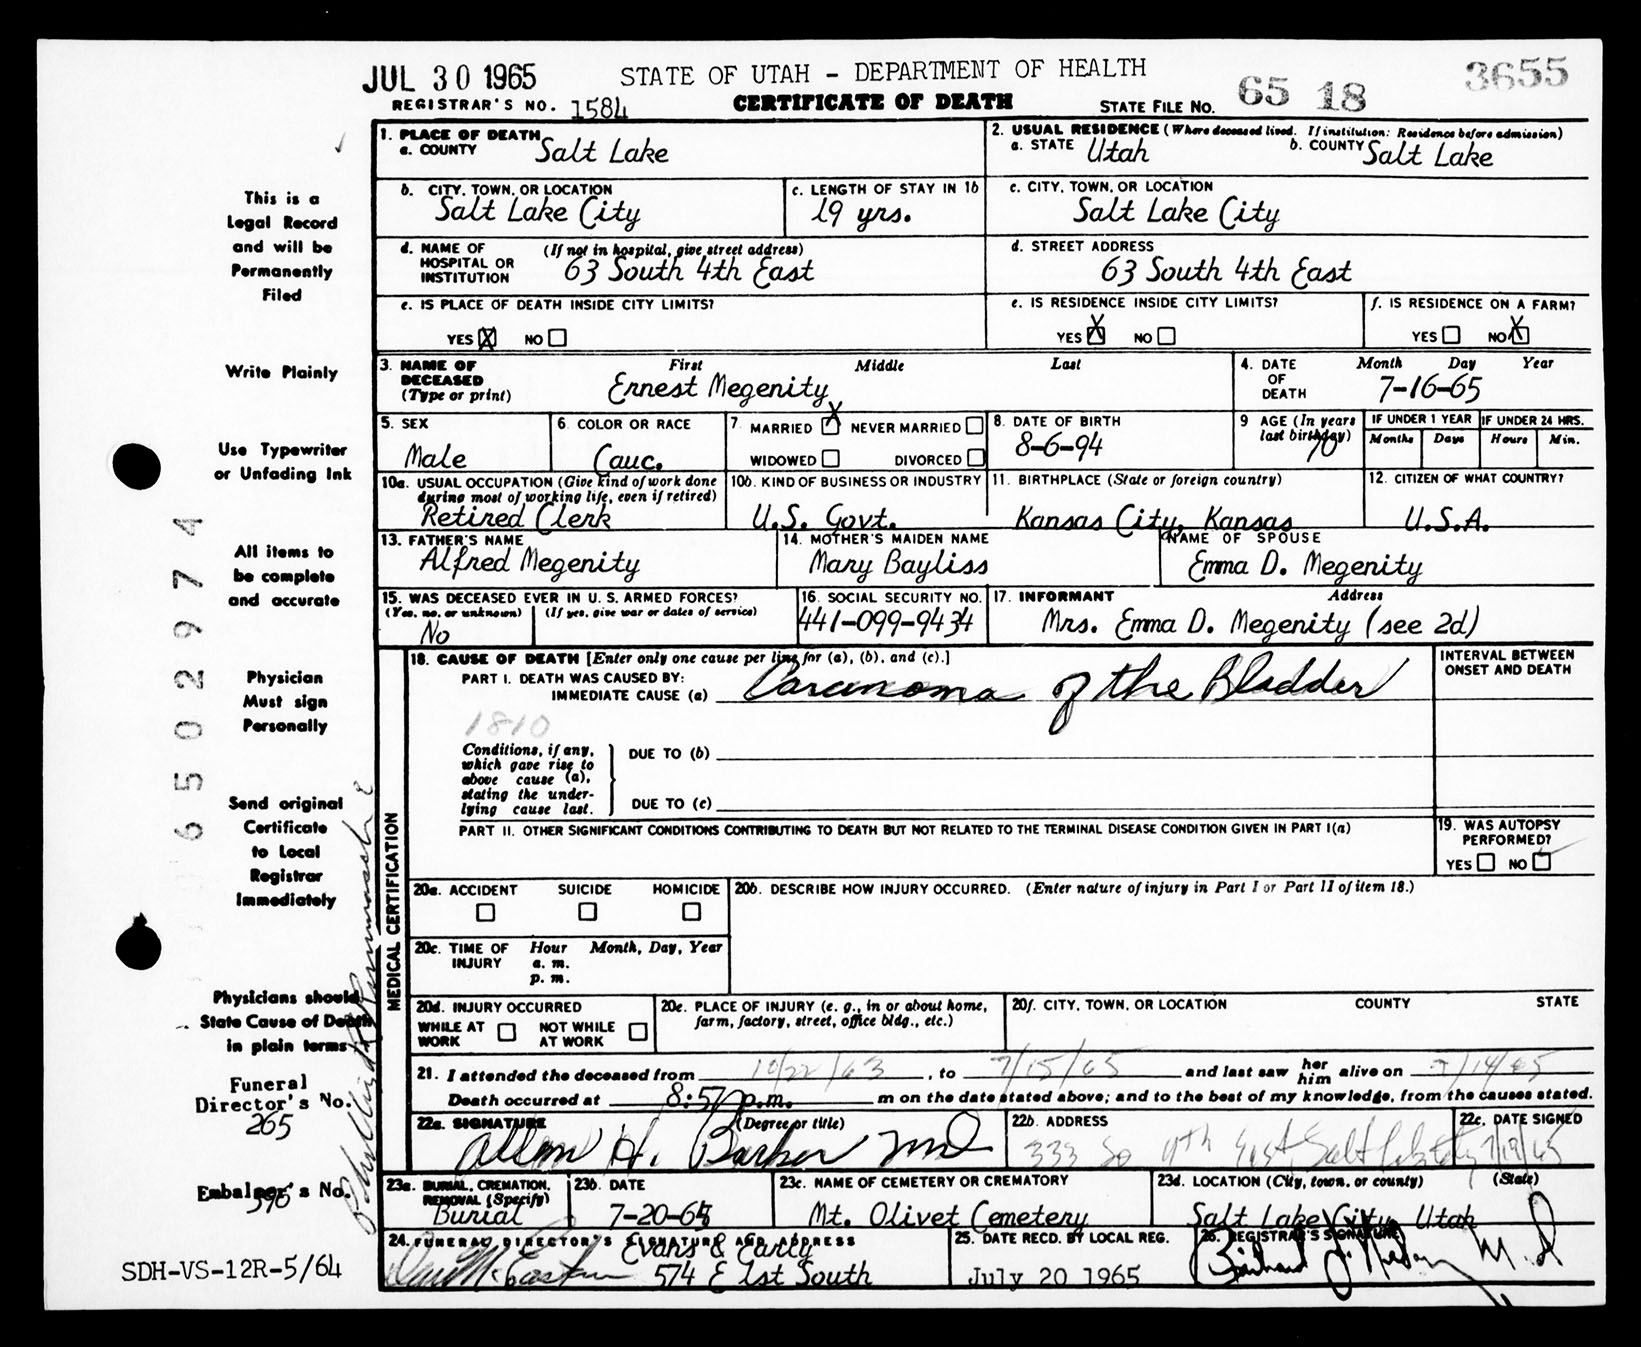 JUL 30 1965
STATE OF UTAH - DEPARTMENT OF HEALTH
3655
REGISTRAR'S NO. 1584
CERTIFICATE OF DEATH
STATE FILE NO. 65 18
This is a
Legal Record
and will be
Permanently
Filed
Write Plainly
Use Typewriter
or Unfading Ink
All items to
be complete
and accurate
Physician
Must sign
Personally
Send original
Certificate
to Local
Registrar
Immediately
Physicians should
State Cause of Death
in plain terms
Funeral
Director's No.
265
Embalmer's No.
SDH-VS-12R-5/64
6502974
1. PLACE OF DEATH
a. COUNTY Salt Lake
2. USUAL RESIDENCE (Where deceased lived. If institution: Residence before admission)
a. STATE Utah b. COUNTY Salt Lake
b. CITY, TOWN, OR LOCATION
Salt Lake City
c. LENGTH OF STAY IN 1b
19 yrs.
c. CITY, TOWN, OR LOCATION
Salt Lake City
d. NAME OF HOSPITAL OR INSTITUTION (If not in hospital, give street address)
63 South 4th East
d. STREET ADDRESS
63 South 4th East
e. IS PLACE OF DEATH INSIDE CITY LIMITS?
YES X NO
e. IS RESIDENCE INSIDE CITY LIMITS?
YES X NO
f. IS RESIDENCE ON A FARM?
YES NO X
3. NAME OF DECEASED (Type or print)
First Middle Last
Ernest Megenity
4. DATE OF DEATH
Month Day Year
7-16-65
5. SEX
Male
6. COLOR OR RACE
Cauc.
7. MARRIED X NEVER MARRIED
WIDOWED DIVORCED
8. DATE OF BIRTH
8-6-94
9 AGE (In years last birthday)
70
IF UNDER 1 YEAR
Months Days
IF UNDER 24 HRS.
Hours Min.
10a. USUAL OCCUPATION (Give kind of work done during most of working life, even if retired)
Retired Clerk
10b. KIND OF BUSINESS OR INDUSTRY
U.S. Govt.
11. BIRTHPLACE (State or foreign country)
Kansas City, Kansas
12. CITIZEN OF WHAT COUNTRY?
U.S.A.
13. FATHER'S NAME
Alfred Megenity
14. MOTHER'S MAIDEN NAME
Mary Bayliss
NAME OF SPOUSE
Emma D. Megenity
15. WAS DECEASED EVER IN U.S. ARMED FORCES?
(Yes, no, or unknown) (If yes, give war or dates of service)
No
16. SOCIAL SECURITY NO.
441-099-9434
17. INFORMANT Address
Mrs. Emma D. Megenity (see 2d)
MEDICAL CERTIFICATION
18. CAUSE OF DEATH [Enter only one cause per line for (a), (b), and (c).]
INTERVAL BETWEEN ONSET AND DEATH
PART I. DEATH WAS CAUSED BY:
IMMEDIATE CAUSE (a) Carcinoma of the Bladder
1810
Conditions, if any, which gave rise to above cause (a), stating the underlying cause last.
DUE TO (b)
DUE TO (c)
PART II. OTHER SIGNIFICANT CONDITIONS CONTRIBUTING TO DEATH BUT NOT RELATED TO THE TERMINAL DISEASE CONDITION GIVEN IN PART I(a)
19. WAS AUTOPSY PERFORMED?
YES NO
20a. ACCIDENT SUICIDE HOMICIDE
20b. DESCRIBE HOW INJURY OCCURRED. (Enter nature of injury in Part I or Part II of item 18.)
20c. TIME OF INJURY Hour Month, Day, Year
a. m.
p. m.
20d. INJURY OCCURRED
WHILE AT WORK NOT WHILE AT WORK
20e. PLACE OF INJURY (e. g., in or about home, farm, factory, street, office bldg., etc.)
20f. CITY, TOWN, OR LOCATION COUNTY STATE
21. I attended the deceased from 10/22/63, to 7/15/65 and last saw her him alive on 7/14/65
Death occurred at 8:57 p.m. m on the date stated above; and to the best of my knowledge, from the causes stated.
22a. SIGNATURE (Degree or title)
Allan H. Barker MD
22b. ADDRESS
333 So 9th East, Salt Lake City
22c. DATE SIGNED
23a. BURIAL, CREMATION, REMOVAL (Specify)
Burial
23b. DATE
7-20-65
23c. NAME OF CEMETERY OR CREMATORY
Mt. Olivet Cemetery
23d. LOCATION (City, town, or county) (State)
Salt Lake City Utah
24. FUNERAL DIRECTOR'S SIGNATURE AND ADDRESS
Evans & Early
574 E 1st South
25. DATE RECD. BY LOCAL REG.
July 20 1965
26. REGISTRAR'S SIGNATURE
M.D